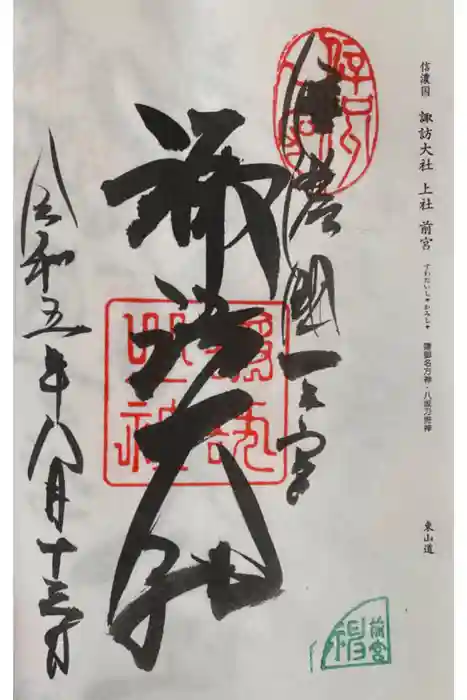 信濃国 諏訪大社 上社 前宮 すわたいしゃかみしゃ 建御名方神・八坂刀売神 東山道
信濃國一之宮
諏訪大社
令和五年八月十三日
諏訪
前宮